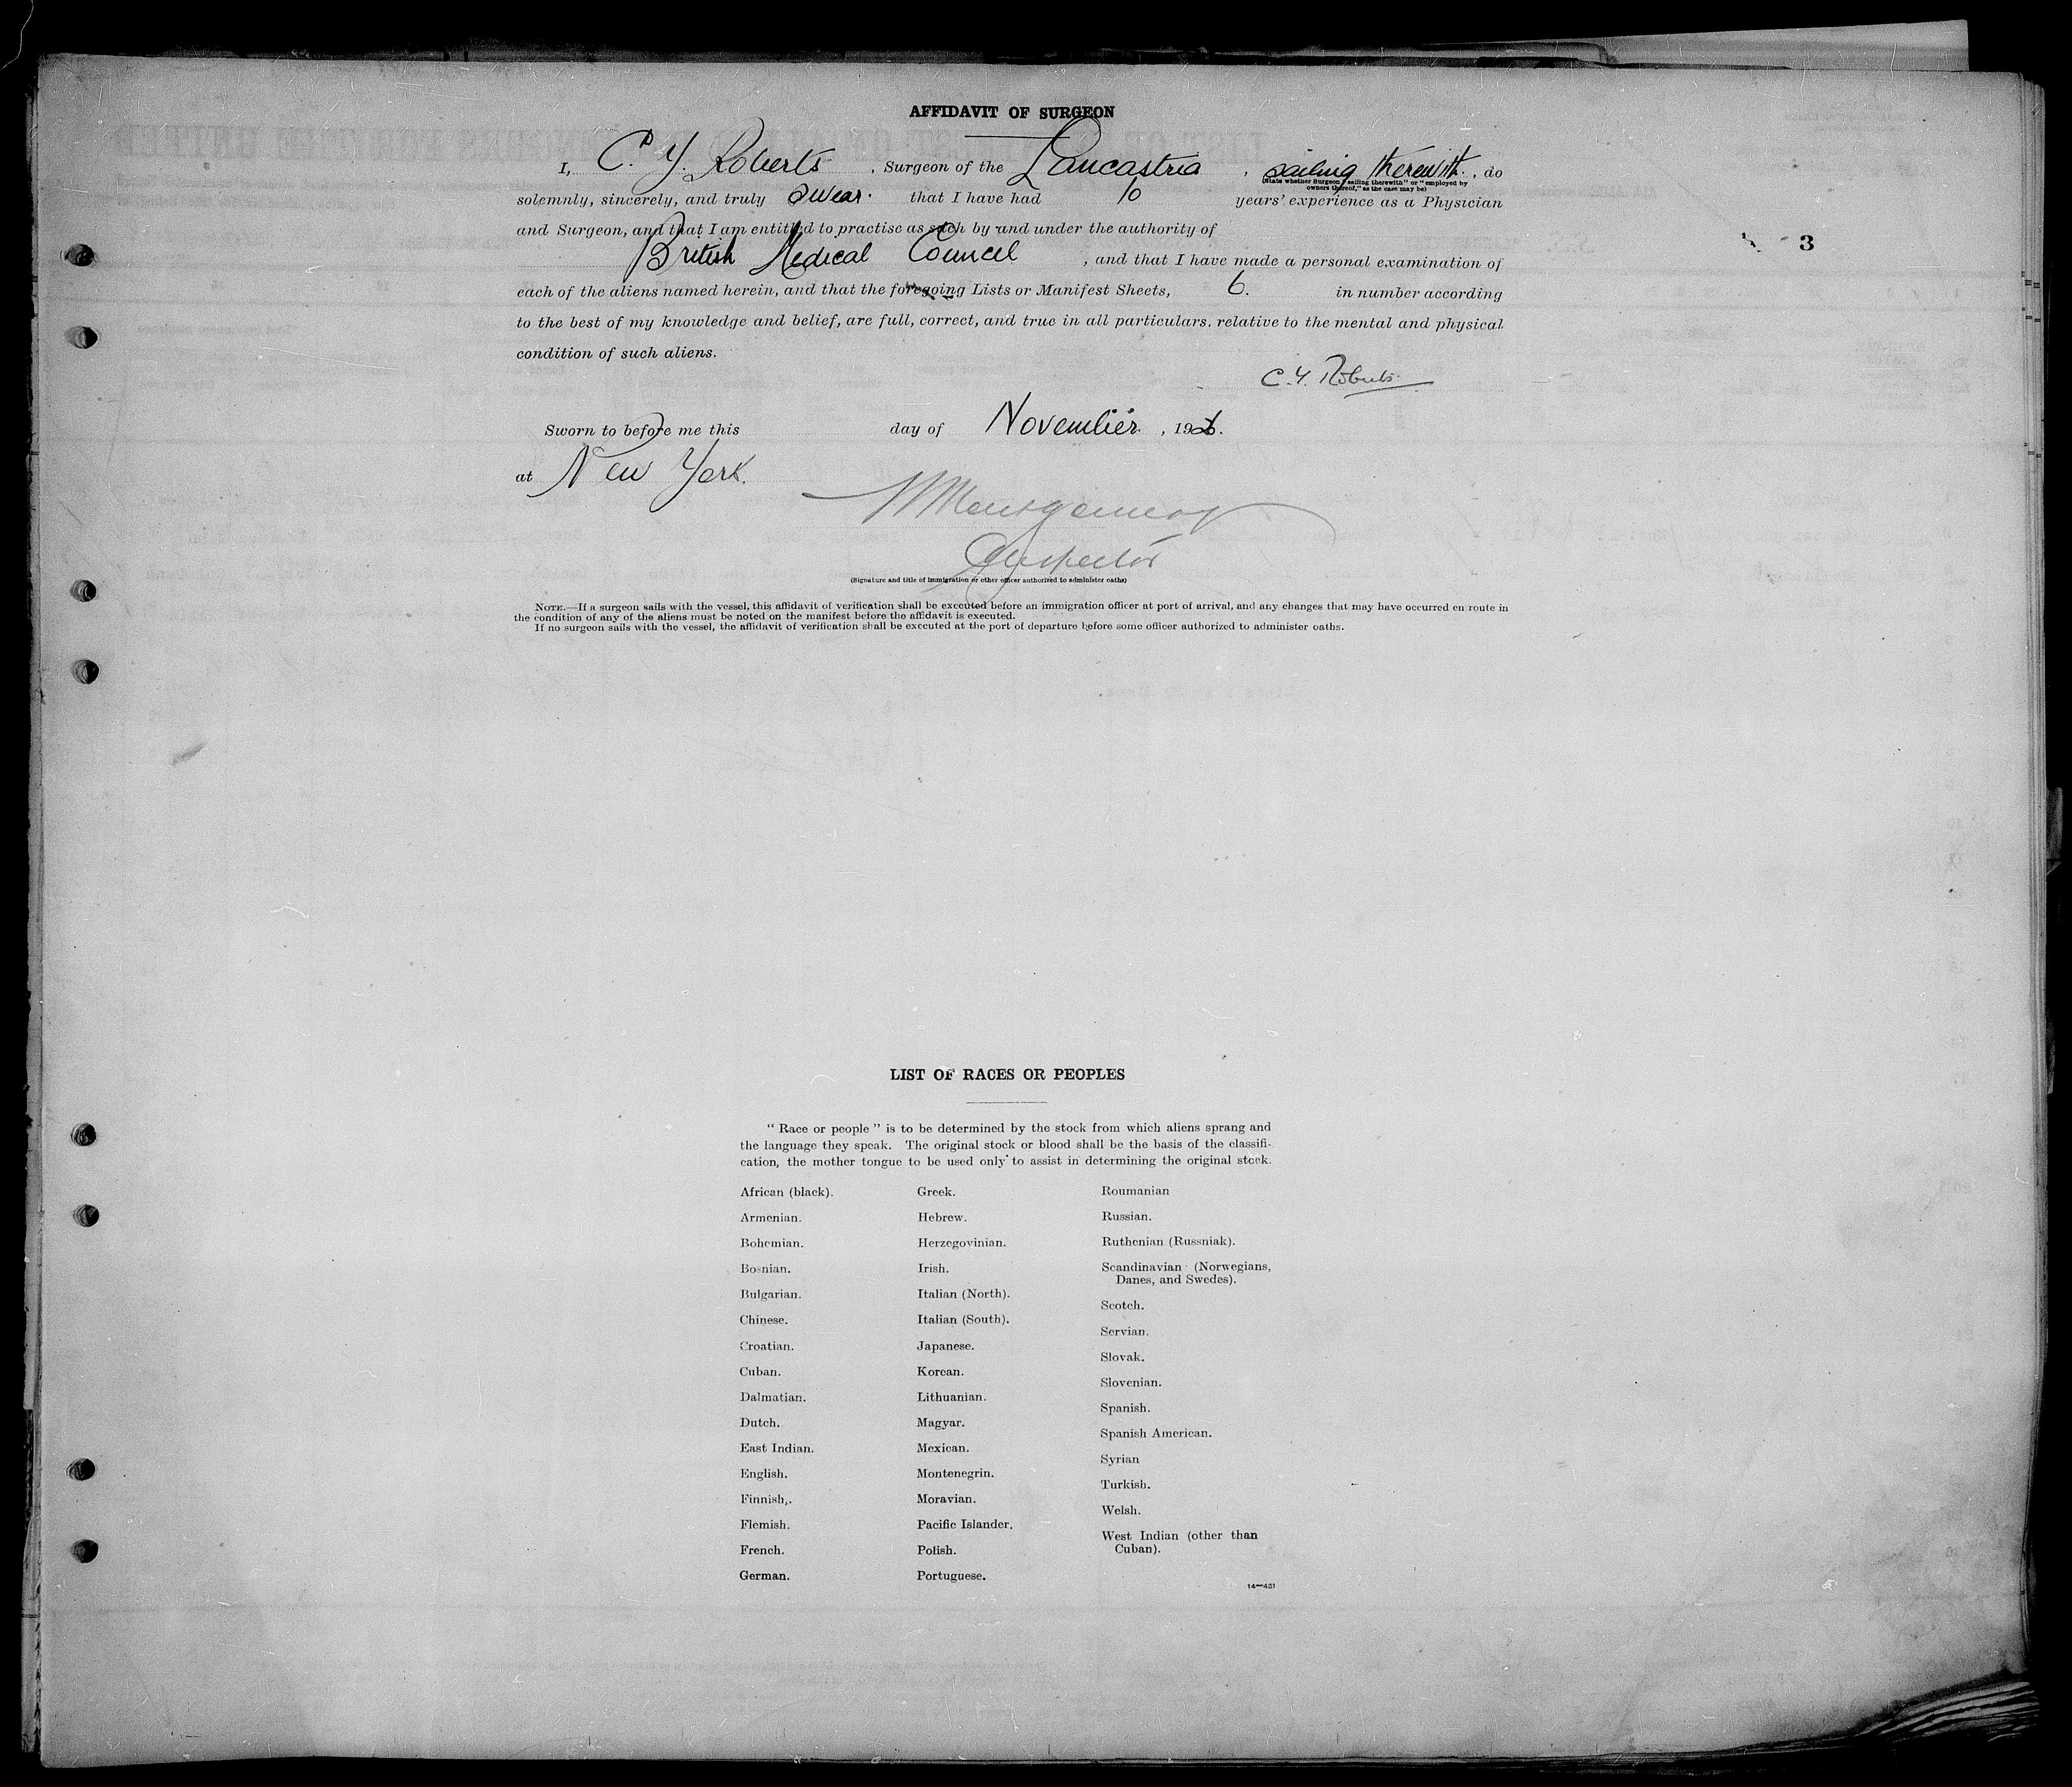 AFFIDAVIT OF SURGEON
I, C. Y. Roberts, Surgeon of the Lancastria, sailing therewith., do
(State whether Surgeon "sailing therewith" or "employed by
owners thereof," as the case may be)
solemnly, sincerely, and truly swear. that I have had 10 years' experience as a Physician
and Surgeon, and that I am entitled to practise as such by and under the authority of
British Medical Council, and that I have made a personal examination of
3
each of the aliens named herein, and that the foregoing Lists or Manifest Sheets, 6. in number according
to the best of my knowledge and belief, are full, correct, and true in all particulars. relative to the mental and physical
condition of such aliens.
C. Y. Roberts
Sworn to before me this day of November, 1926.
at New York.
Montgomery
Inspector
(Signature and title of immigration or other officer authorized to administer oaths)
NOTE.—If a surgeon sails with the vessel, this affidavit of verification shall be executed before an immigration officer at port of arrival, and any changes that may have occurred en route in
the condition of any of the aliens must be noted on the manifest before the affidavit is executed.
If no surgeon sails with the vessel, the affidavit of verification shall be executed at the port of departure before some officer authorized to administer oaths.
LIST OF RACES OR PEOPLES
"Race or people" is to be determined by the stock from which aliens sprang and
the language they speak. The original stock or blood shall be the basis of the classifi-
cation, the mother tongue to be used only to assist in determining the original stock.
African (black).
Armenian.
Bohemian.
Bosnian.
Bulgarian.
Chinese.
Croatian.
Cuban.
Dalmatian.
Dutch.
East Indian.
English.
Finnish,.
Flemish.
French.
German.
Greek.
Hebrew.
Herzegovinian.
Irish.
Italian (North).
Italian (South).
Japanese.
Korean.
Lithuanian.
Magyar.
Mexican.
Montenegrin.
Moravian.
Pacific Islander.
Polish.
Portuguese.
Roumanian
Russian.
Ruthenian (Russniak).
Scandinavian (Norwegians,
Danes, and Swedes).
Scotch.
Servian.
Slovak.
Slovenian.
Spanish.
Spanish American.
Syrian
Turkish.
Welsh.
West Indian (other than
Cuban).
14—451